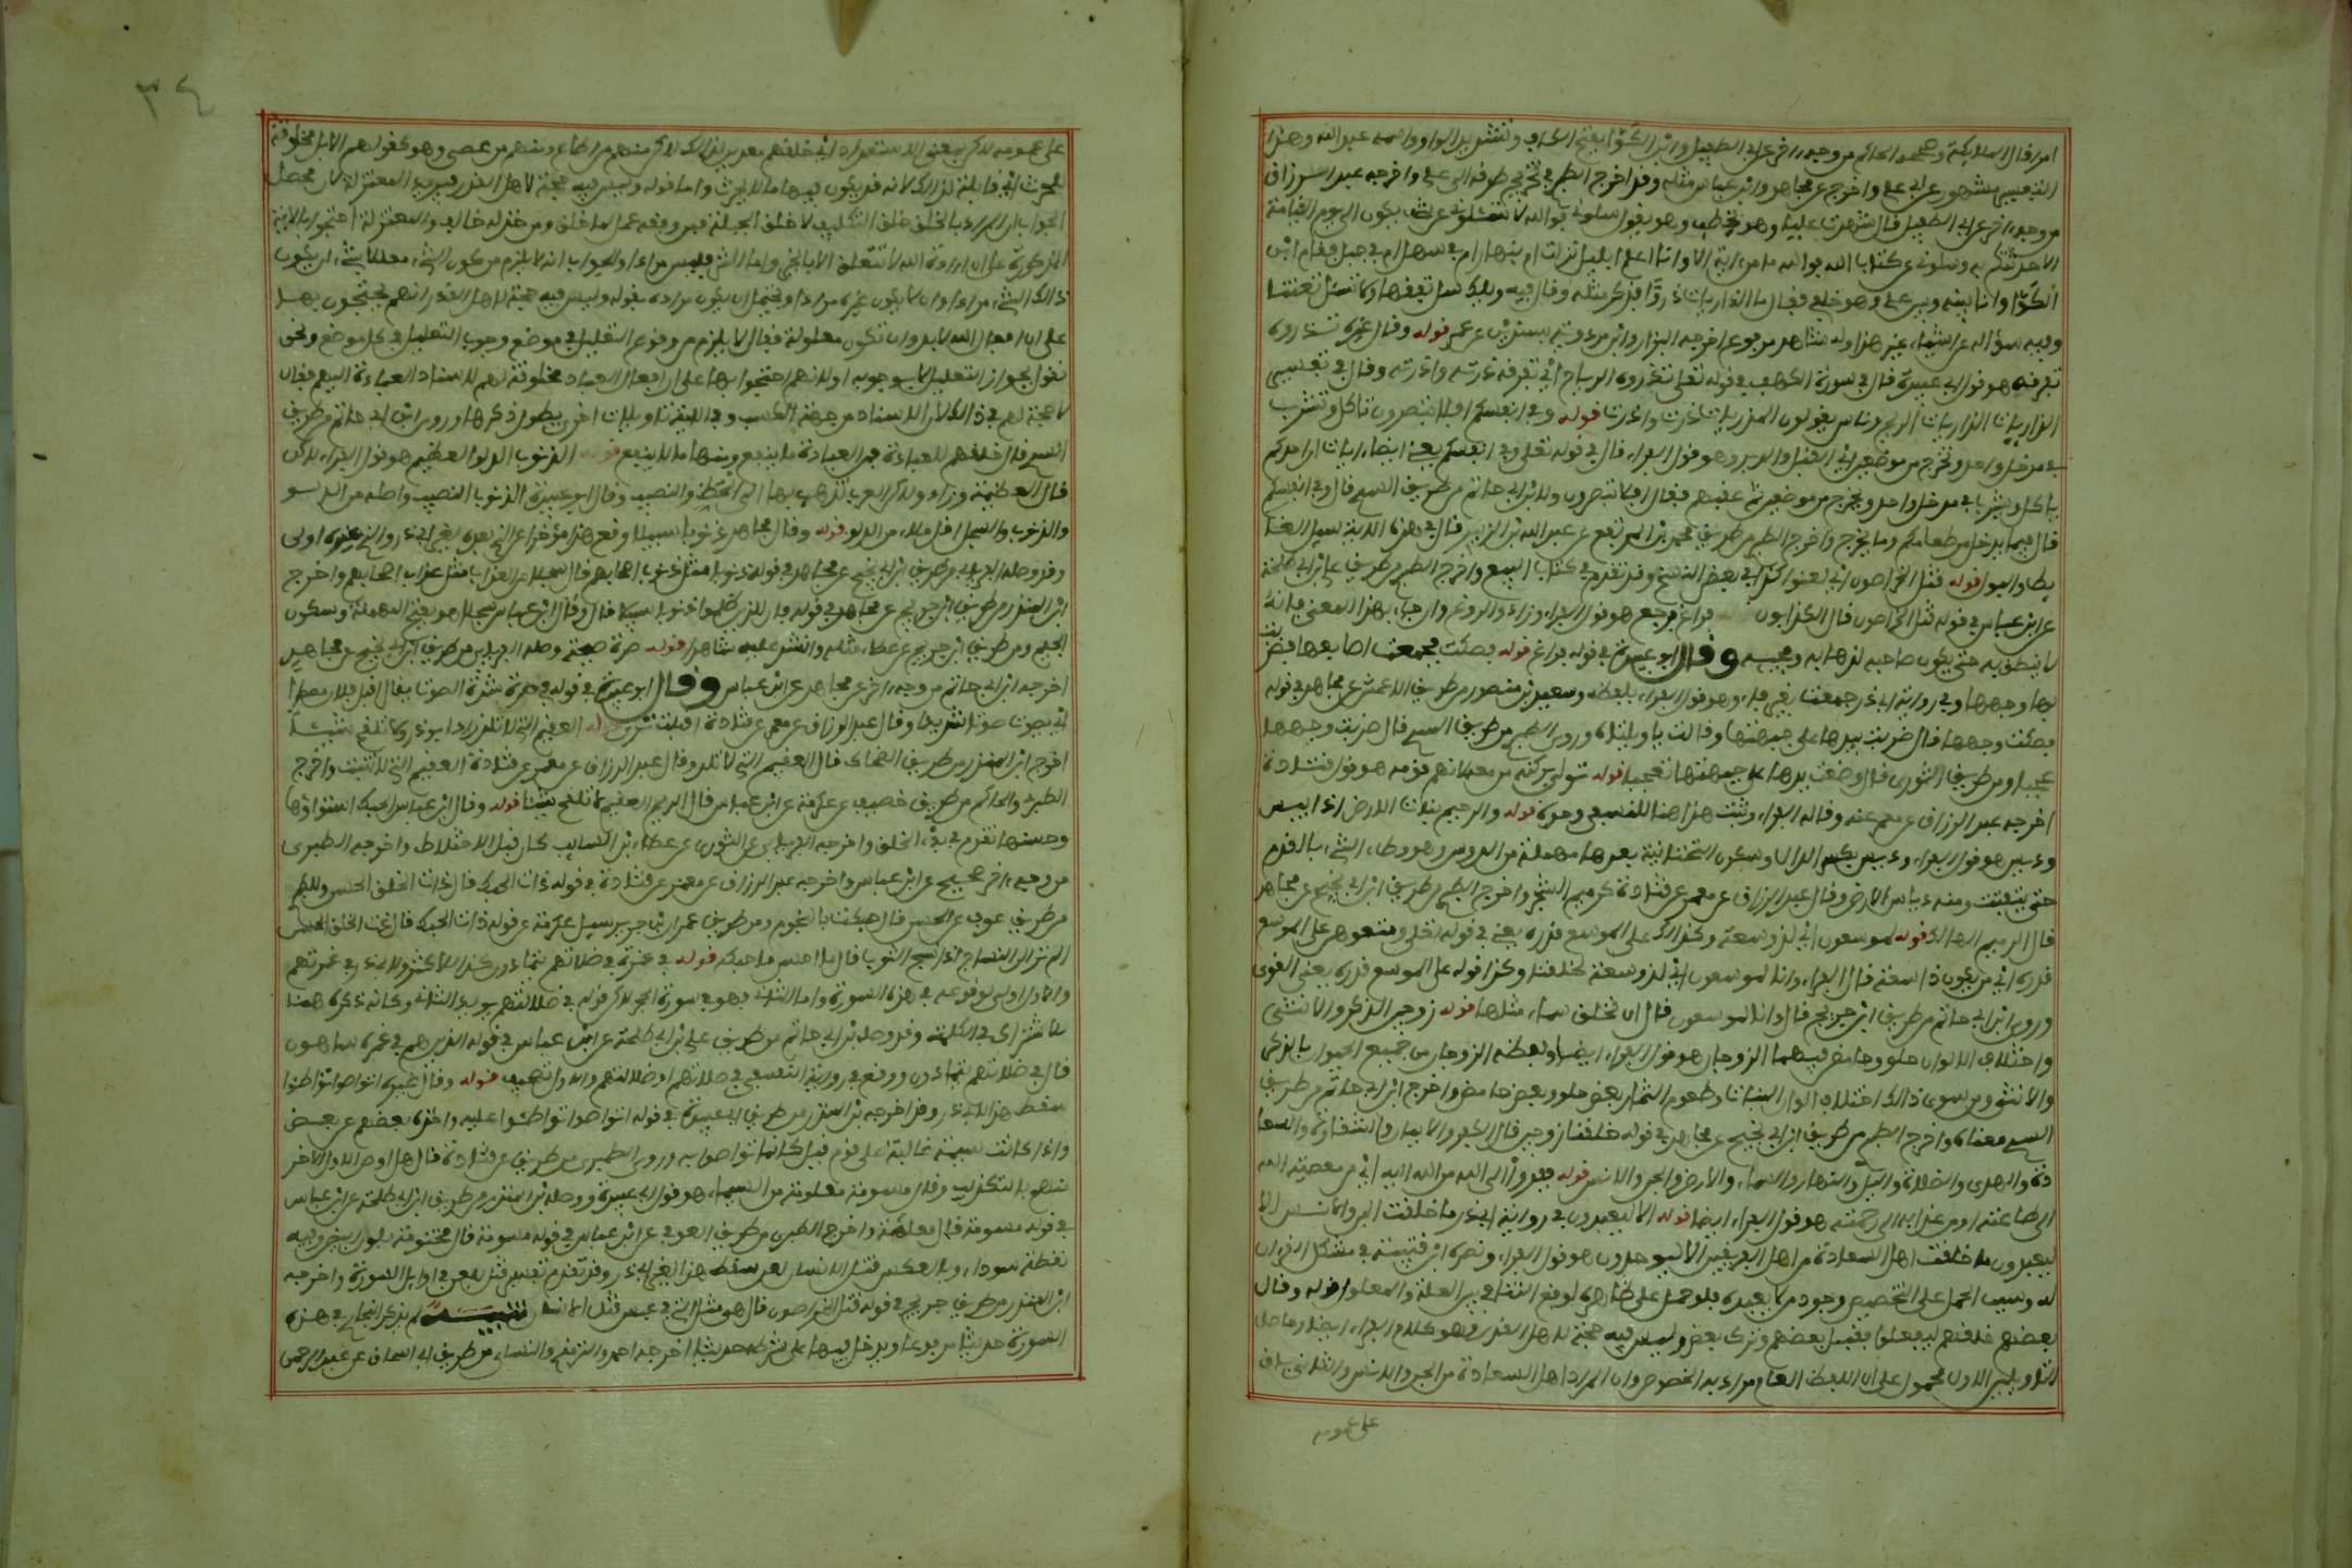 امرا قال الملائكة وصححه الحاكم من وجه اخر عن ابي الطفيل وابن الكوّا بفتح الكاف وتشديد الواو واسمه عبد الله وهذا
التفسير مشهور عن علي واخرج عن مجاهد وابن عباس مثله وقد اخرج الطبري تخريج طرقه الى علي واخرجه عبد الرزاق
من وجه اخر عن ابي الطفيل قال شهدت عليا وهو يخطب وهو يقول سلوني فوالله لا تسئلوني عن شيء يكون الى يوم القيامة
الا حدثتكم به وسلوني عن كتاب الله فوالله ما من اية الا وانا اعلم ابليل نزلت ام بنهار ام في سهل ام في جبل فقام ابن
الكوّا وانا بينه وبين علي وهو خلفي فقال ما الذاريات ذروًا فذكر مثله وقال فيه ويلك سل تفقها ولا تسئل تعنتا
وفيه سؤاله عن اشياء غير هذا وله شاهد مرفوع اخرجه البزار وابن مردويه بسند لين عن عمر قوله وقال غيره تذروه
تفرقه هو قول ابي عبيدة قال في سورة الكهف في قوله تعلى تذروه الرياح اي تفرقه ذرته واذرته وقال في تفسير
الذاريات الذاريات الريح وناس يقولون المذريات ذرت واذرت قوله وفي انفسكم افلا تبصرون تاكل وتشرب
في مدخل واحد ويخرج من موضعين اي القبل والدبر وهو قول الفراء قال في قوله تعلى وفي انفسكم يعني ايضا ايات ان احدكم
ياكل ويشرب في مدخل واحد ويخرج من موضعين ثم عنفهم فقال افلا تبصرون ولابن ابي حاتم من طريق السدي قال وفي انفسكم
قال فيما يدخل من طعامكم وما يخرج واخرج الطبري من طريق محمد بن المرتفع عن عبد الله بن الزبير قال في هذه الاية سبيل الغائط
والبول قوله قتل الخراصون اي لعنوا كذا في بعض النسخ وقد تقدم في كتاب البيوع واخرج الطبري من طريق علي بن ابي طلحة
عن ابن عباس في قوله قتل الخراصون قال الكذابون فراغ فرجع هو قول الفراء وزاد والروغ وان جاء بهذا المعنى فانه
لا ينطق به حتى يكون صاحبه لذهابه ومجيئه وقال ابو عبيدة في قوله فراغ قوله فصكت فجمعت اصابعها فضربت
بها وجهها وفي رواية ابي ذر جمعت بغير فاء وهو قول الفراء بلفظه وسعيد بن منصور من طريق الاعمش عن مجاهد في قوله
فصكت وجهها قال ضربت بيدها على جبهتها وقالت يا ويلتاه وروى الطبري من طريق السدي قال ضربت وجهها
عجبا ومن طريق الثوري قال وضعت يدها على جبهتها تعجبا قوله فتولى بركنه من معه لانهم قومه هو قول قتادة
اخرجه عبد الرزاق عن معمر عنه وقاله الفراء وثبت هذا هنا للنسفي وحده قوله والرميم نبات الارض اذا يبس
وديس هو قول الفراء وديس بكسر الدال وسكون التحتانية بعدها مهملة من الدوس وهو وطء الشيء بالقدم
حتى يتفتت ومنه دياس الارض وقال عبد الرزاق عن معمر عن قتادة كرميم الشجر واخرج الطبري من طريق ابن ابي نجيح عن مجاهد
قال الرميم الهالك قوله لموسعون اي لذو سعة وكذلك على الموسع قدره يعني في قوله تعلى ومتعوهن على الموسع
قدره اي من يكون ذا سعة قال الفراء وانا لموسعون اي لذو سعة لخلقنا وكذا قوله على الموسع قدره يعني القوى
وروى ابن ابي حاتم من طريق ابن جريج قال وانا لموسعون قال ان نخلق سماء مثلها قوله زوجين الذكر والانثى
واختلاف الالوان حلو وحامض فهما الزوجان هو قول الفراء ايضا ولفظه الزوجان من جميع الحيوان الذكر
والانثى ومن سوى ذلك اختلاف الوان النبات وطعوم الثمار بعض حلو وبعض حامض واخرج ابن ابي حاتم من طريق
السدي معناه واخرج الطبري من طريق ابن ابي نجيح عن مجاهد في قوله خلقنا زوجين قال الكفر والايمان والشقاوة والسعا
دة والهدى والضلالة والليل والنهار والسماء والارض والجن والانس قوله ففروا الى الله من الله اليه اي من معصيته الى
طاعته او من عذابه الى رحمته هو قول الفراء ايضا قوله الا ليعبدون في رواية ابي ذر وما خلقت الجن والانس الا
ليعبدون ما خلقت اهل السعادة من اهل الفريقين الا ليوحدون هو قول الفراء ونصره ابن قتيبة في مشكل القرءان
له وسبب الحمل على التخصيص وجود من لا يعبده فلو حمل على ظاهره لوقع التنافي بين العلة والمعلول قوله وقال
بعضهم خلقهم ليفعلوا ففعل بعضهم وترك بعض وليس فيه حجة لاهل القدر هو كلام الفراء ايضا وحاصل
التاويلين الاول محمول على ان اللفظ العام مراد به الخصوص وان المراد اهل السعادة من الجن والانس والثاني باق
على عمومه
٣٤
على عمومه لكن بمعنى الاستعداد اي خلقهم معدين لذلك لكن منهم من اطاع ومنهم من عصى وهو كقولهم الابل مخلوقة
للحرث اي قابلة لذلك لانه قد يكون فيها ما لا يحرث واما قوله وليس فيه حجة لاهل القدر فيريد المعتزلة لان محصل
الجواب ان المراد بالخلق خلق التكليف لا خلق الجبلة فمن وفقه عمل لما خلق ومن خذله خالف والمعتزلة احتجوا بالاية
المذكورة على ان ارادة الله لا تتعلق الا بالخير واما الشر فليس مرادا والجواب انه لا يلزم من كون الشيء معللا بشيء ان يكون
ذلك الشيء مرادا وان لا يكون غيره مرادا ويحتمل ان يكون مراده بقوله وليس فيه حجة لاهل القدر انهم يحتجون بها
على ان افعال الله لا بد وان تكون معلولة فقال لا يلزم من وقوع التعليل في موضع وجوب التعليل في كل موضع ونحن
نقول بجواز التعليل لا بوجوبه او لانهم احتجوا بها على ان افعال العباد مخلوقة لهم لاسناد العبادة اليهم فقال
لا حجة لهم في ذلك لان الاسناد من جهة الكسب وفي الاية تاويلات اخرى يطول ذكرها وروى ابن ابي حاتم من طريق
السدي قال خلقهم للعبادة فمن العبادة ما ينفع ومنها ما لا ينفع قوله الذنوب الدلو العظيم هو قول الفراء لكن
قال العظيمة وزاد ولكن العرب تذهب بها الى الحظ والنصيب وقال ابو عبيدة الذنوب النصيب واصله من الدلو
والذنوب والسجل اقل ملاء من الدلو قوله وقال مجاهد ذنوبا سبيلا وقع هذا مؤخرا عن الذي بعده لغير ابي ذر والذي عنده اولى
وقد وصله الفريابي من طريق ابن ابي نجيح عن مجاهد في قوله ذنوبا مثل ذنوب اصحابهم قال سجلا من العذاب مثل عذاب اصحابهم واخرج
ابن المنذر من طريق ابن جريج عن مجاهد في قوله فان للذين ظلموا ذنوبا سبيلا قال وقال ابن عباس سجلا هو بفتح المهملة وسكون
الجيم ومن طريق ابن جريج عن عطاء مثله وانشد عليه شاهدا قوله صرة صيحة وصله الفريابي من طريق ابن ابي نجيح عن مجاهد
اخرجه ابن ابي حاتم من وجه اخر عن مجاهد عن ابن عباس وقال ابو عبيدة في قوله في صرة شدة الصوت يقال اقبل فلان يصطر
اي يصوت صوتا شديدا وقال عبد الرزاق عن معمر عن قتادة اقبلت ترن قوله العقيم التي لا تلد زاد ابو ذر ولا تلقح شيئا
اخرج ابن المنذر من طريق الضحاك قال العقيم التي لا تلد وقال عبد الرزاق عن معمر عن قتادة العقيم التي لا تنبت واخرج
الطبري والحاكم من طريق خصيف عن عكرمة عن ابن عباس قال الريح العقيم لا تلقح شيئا قوله وقال ابن عباس الحبك استواؤها
وحسنها تقدم في بدء الخلق واخرجه الفريابي عن الثوري عن عطاء بن السائب كان قبل الاختلاط واخرجه الطبري
من وجه اخر صحيح عن ابن عباس واخرجه عبد الرزاق عن معمر عن قتادة في قوله ذات الحبك قال ذات الخلق الحسن وللطبري
من طريق عوف عن الحسن قال حبكت بالنجوم ومن طريق عمران بن جرير سئل عكرمة عن قوله ذات الحبك قال ذات الخلق الحسن
الم تر الى النساج اذا نسج الثوب قال ما احسن ما حبكه قوله في غمرة في ضلالتهم يتمادون كذا للاكثر ولابي ذر في غمرتهم
والاول اولى لوقوعه في هذه السورة واما الثاني فهو في سورة الحجر لكن قوله في ضلالتهم يؤيد الثاني وكانه ذكره هنا
للاشتراك في الكلمة وقد وصله ابن ابي حاتم من طريق علي بن ابي طلحة عن ابن عباس في قوله الذين هم في غمرة ساهون
قال في ضلالتهم يتمادون ووقع في رواية النسفي في صلاتهم او ضلالتهم والاول تصحيف قوله وقال غيره تواصوا تواطئوا
سقط هذا لابي ذر وقد اخرجه ابن المنذر من طريق ابي عبيدة في قوله اتواصوا تواطئوا عليه واخذه بعضهم عن بعض
واذا كانت شيمة غالبة على قوم قيل كانما تواصوا به وروى الطبري من طريق عن قتادة قال هل اوصى الاول الاخر
منهم بالتكذيب وقال مسومة معلومة من السيما هو قول ابي عبيدة ووصله ابن المنذر من طريق ابن ابي طلحة عن ابن عباس
في قوله مسومة قال معلمة واخرج الطبري من طريق العوفي عن ابن عباس في قوله مسومة قال مختومة بلون ابيض وفيه
نقطة سوداء وبالعكس قتل الانسان لعن سقط هذا لغير ابي ذر وقد تقدم تفسير قتل بلعن في اوائل السورة واخرجه
ابن المنذر من طريق جريج في قوله قتل الخراصون قال هي مثل التي في عبس قتل الانسان تنبيه لم يذكر البخاري في هذه
السورة حديثا مرفوعا ويدخل فيها على شرطه حديث اخرجه احمد والترمذي والنسائي من طريق ابي اسحاق عن عبد الرحمن